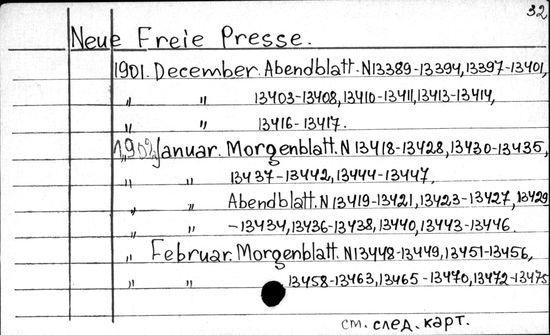 32
Neue Freie Presse.
1901. December. Abendblatt. N13389-13394, 13397-13401,
" " 13403-13408, 13410-13411, 13413-13414,
" " 13416-13417.
1902 Januar. Morgenblatt. N 13418-13428, 13430-13435,
" " 13437-13442, 13444-13447,
" " Abendblatt. N 13419-13421, 13423-13427, 13429
" " -13434, 13436-13438, 13440, 13443-13446.
" Februar. Morgenblatt. N13448-13449, 13451-13456,
" " 13458-13463, 13465-13470, 13472-13475
см. след. карт.